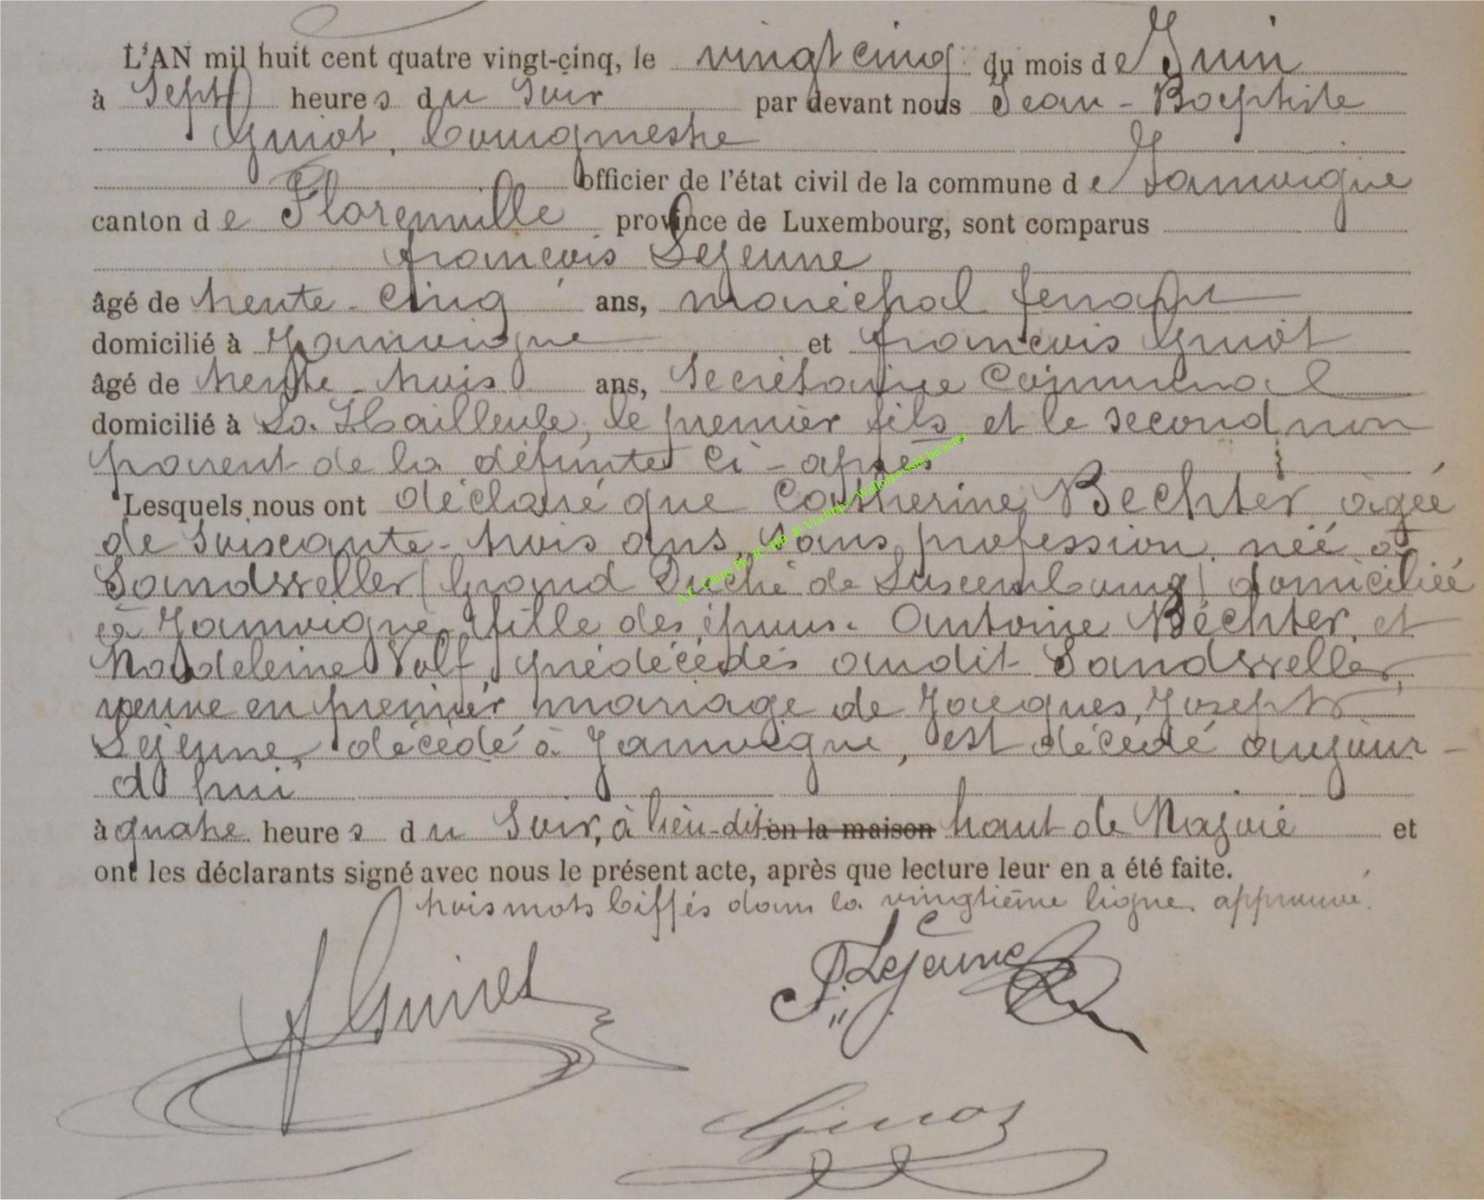 L'AN mil huit cent quatre vingt-cinq, le vingt cinq du mois de Juin
à Sept heures du Soir par devant nous Jean-Baptiste
Guiot, bourgmestre
officier de l'état civil de la commune de Jamoigne
canton de Florenville province de Luxembourg, sont comparus
françois Lejeune
âgé de trente-cinq ans, maréchal ferrant
domicilié à Jamoigne et françois Guiot
âgé de trente-trois ans, Secrétaire Communal
domicilié à La Hailleule, le premier fils et le second non
parent de la défunte ci-après
Lesquels nous ont déclaré que Catherine Bechter âgée
de Soixante-trois ans, Sans profession, née à
Sandweller (Grand Duché de Luxembourg) domiciliée
à Jamoigne, fille des époux Antoine Béchter, et
Madeleine Volf, prédécédés audit Sandweller,
veuve en premier mariage de Jacques, Joseph
Lejeune, décédé à Jamoigne, est décédé aujour-
d'hui
à quatre heures du Soir, à lieu-dit en la maison haut de Najoie et
ont les déclarants signé avec nous le présent acte, après que lecture leur en a été faite.
trois mots biffés dans la vingtième ligne approuvé.
F. Lejeune
Guiot